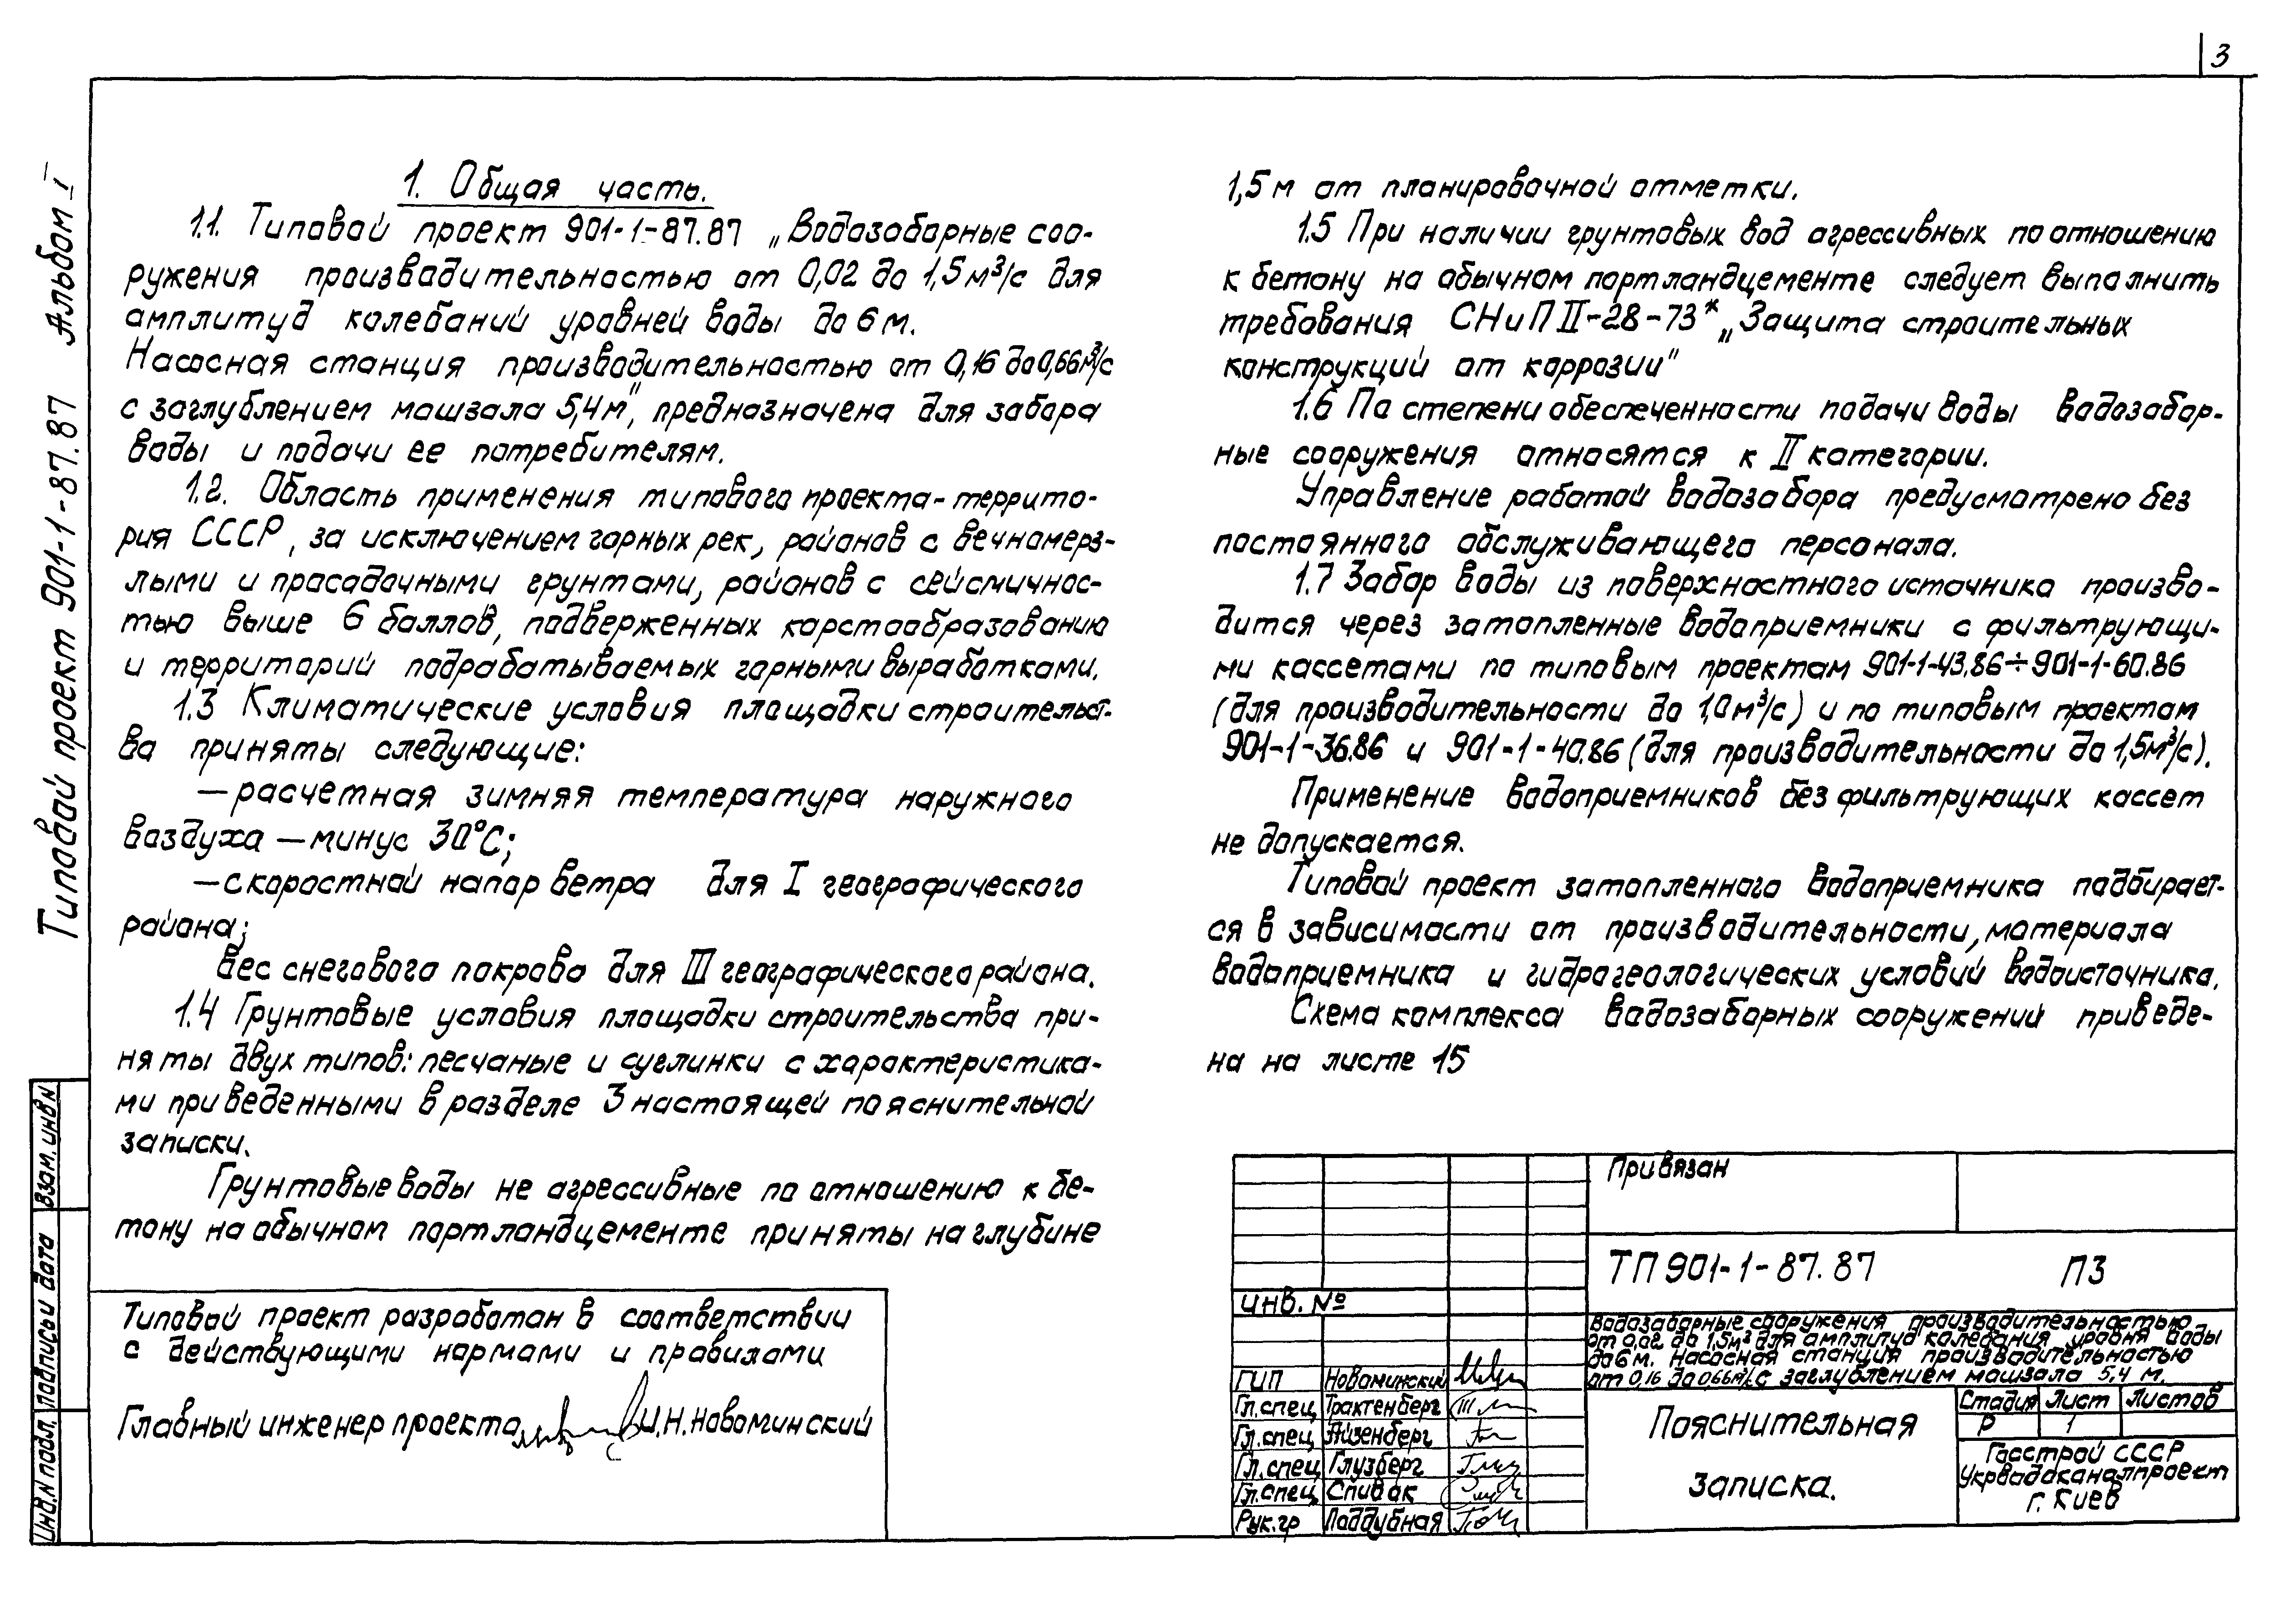 3
Типовой проект 901-1-87.87 Альбом I
1. Общая часть.
1.1. Типовой проект 901-1-87.87 „Водозаборные соо-
ружения производительностью от 0,02 до 1,5 м³/с для
амплитуд колебаний уровней воды до 6 м.
Насосная станция производительностью от 0,16 до 0,66 м³/с
с заглублением машзала 5,4 м", предназначена для забора
воды и подачи ее потребителям.
1.2. Область применения типового проекта - террито-
рия СССР, за исключением горных рек, районов с вечномерз-
лыми и просадочными грунтами, районов с сейсмичнос-
тью выше 6 баллов, подверженных карстообразованию
и территорий подрабатываемых горными выработками.
1.3 Климатические условия площадки строительст-
ва приняты следующие:
— расчетная зимняя температура наружного
воздуха — минус 30°С;
— скоростной напор ветра для I географического
района;
вес снегового покрова для III географического района.
1.4 Грунтовые условия площадки строительства при-
няты двух типов: песчаные и суглинки с характеристика-
ми приведенными в разделе 3 настоящей пояснительной
записки.
Грунтовые воды не агрессивные по отношению к бе-
тону на обычном портландцементе приняты на глубине
1,5 м от планировочной отметки.
1.5 При наличии грунтовых вод агрессивных по отношению
к бетону на обычном портландцементе следует выполнить
требования СНиП II-28-73* „Защита строительных
конструкций от коррозии"
1.6 По степени обеспеченности подачи воды водозабор-
ные сооружения относятся к II категории.
Управление работой водозабора предусмотрено без
постоянного обслуживающего персонала.
1.7 Забор воды из поверхностного источника произво-
дится через затопленные водоприемники с фильтрующи-
ми кассетами по типовым проектам 901-1-43.86÷901-1-60.86
(для производительности до 1,0 м³/с) и по типовым проектам
901-1-36.86 и 901-1-40.86 (для производительности до 1,5 м³/с).
Применение водоприемников без фильтрующих кассет
не допускается.
Типовой проект затопленного водоприемника подбирает-
ся в зависимости от производительности, материала
водоприемника и гидрогеологических условий водоисточника.
Схема комплекса водозаборных сооружений приведе-
на на листе 15
Типовой проект разработан в соответствии
с действующими нормами и правилами
Главный инженер проекта И.Н. Новоминский
Взам. инв. N
Подпись и дата
Инв. N подл.
Привязан
Инв. №
ТП 901-1-87.87 ПЗ
Водозаборные сооружения производительностью
от 0,02 до 1,5 м³ для амплитуд колебания уровня воды
до 6 м. Насосная станция производительностью
от 0,16 до 0,66 м³/с с заглублением машзала 5,4 м.
ГИП Новоминский
Гл. спец Трактенберг
Гл. спец Айзенберг
Гл. спец Глузберг
Гл. спец Спивак
Рук. гр Поддубная
Пояснительная
записка.
Стадия Лист Листов
Р 1
Госстрой СССР
Укрводоканалпроект
г. Киев